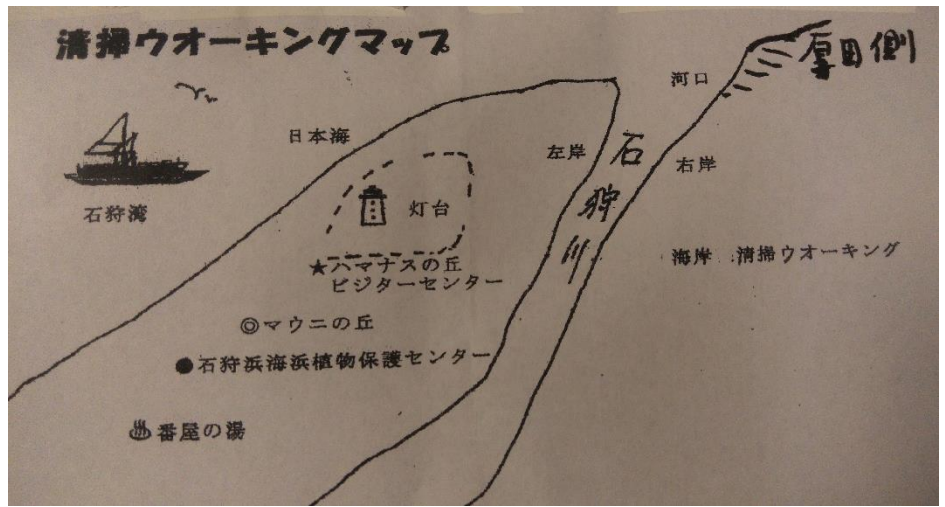 清掃ウオーキングマップ
厚田側
河口
日本海
左岸
石狩川
右岸
石狩湾
灯台
海岸 清掃ウオーキング
★ハマナスの丘
ビジターセンター
◎マウニの丘
●石狩浜海浜植物保護センター
♨番屋の湯